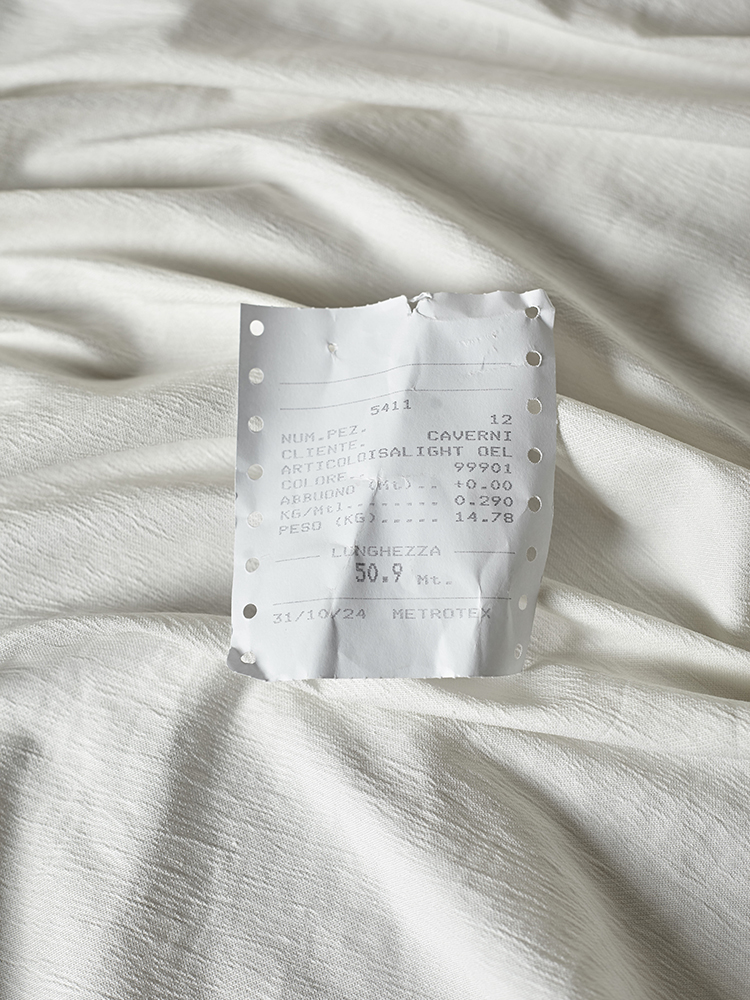 5411
NUM.PEZ. 12
CLIENTE. CAVERNI
ARTICOLOISALIGHT OEL
COLORE.. 99901
ABBUONO (Mt).. +0.00
KG/Mtl........ 0.290
PESO (KG)..... 14.78
LUNGHEZZA
50.9 Mt.
31/10/24 METROTEX